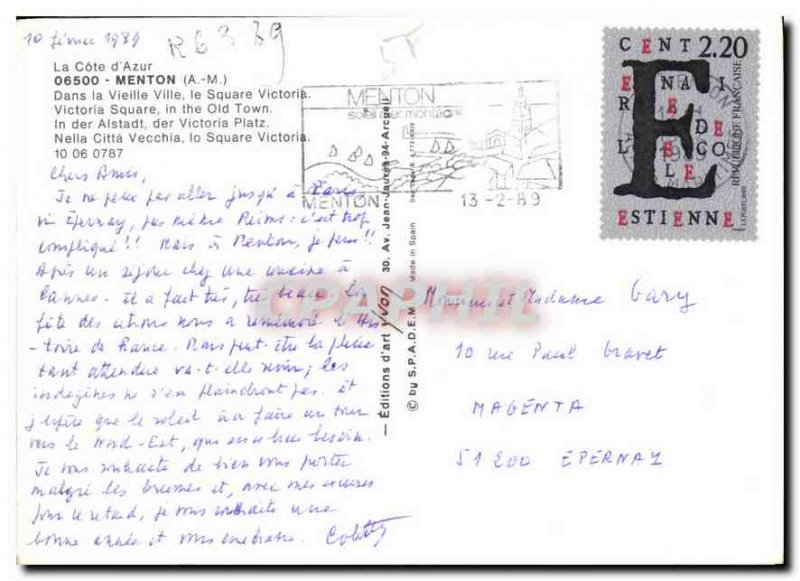 10 février 1989
R6339
La Côte d'Azur
06500 - MENTON (A.-M.)
Dans la Vieille Ville, le Square Victoria.
Victoria Square, in the Old Town.
In der Alstadt, der Victoria Platz.
Nella Città Vecchia, lo Square Victoria.
10 06 0787
Chers Amis,
Je ne peux pas aller jusqu'à Paris
ni Epernay, pas même Reims : c'est trop
compliqué !! Mais à Menton, je peux !!
Après un séjour chez une cousine à
Cannes. Il a fait très, très beau. La
fête des citrons nous a remémoré l'His
-toire de France. Mais peut-être la pluie
tant attendue va-t-elle venir ; les
indigènes ne s'en plaindront pas. Et
j'espère que le soleil ira faire un tour
vers le Nord-Est, qui en a bien besoin.
Je vous souhaite de bien vous porter
malgré les brumes et, avec mes excuses
pour le retard, je vous souhaite une
bonne année et vous embrasse.
— Editions d'art Yvon 30. Av. Jean-Jaurès-94-Arcueil —
© by S.P.A.D.E.M. Made in Spain
MENTON
soleil mer montagne
MENTON
13-2-89
CENT 2.20
ENAI
RE DE
L ECO
LE
ESTIENNE
REPUBLIQUE FRANÇAISE
1989
CPAPHIL
Monsieur et Madame Gary
10 rue Paul Gravet
MAGENTA
51200 EPERNAY